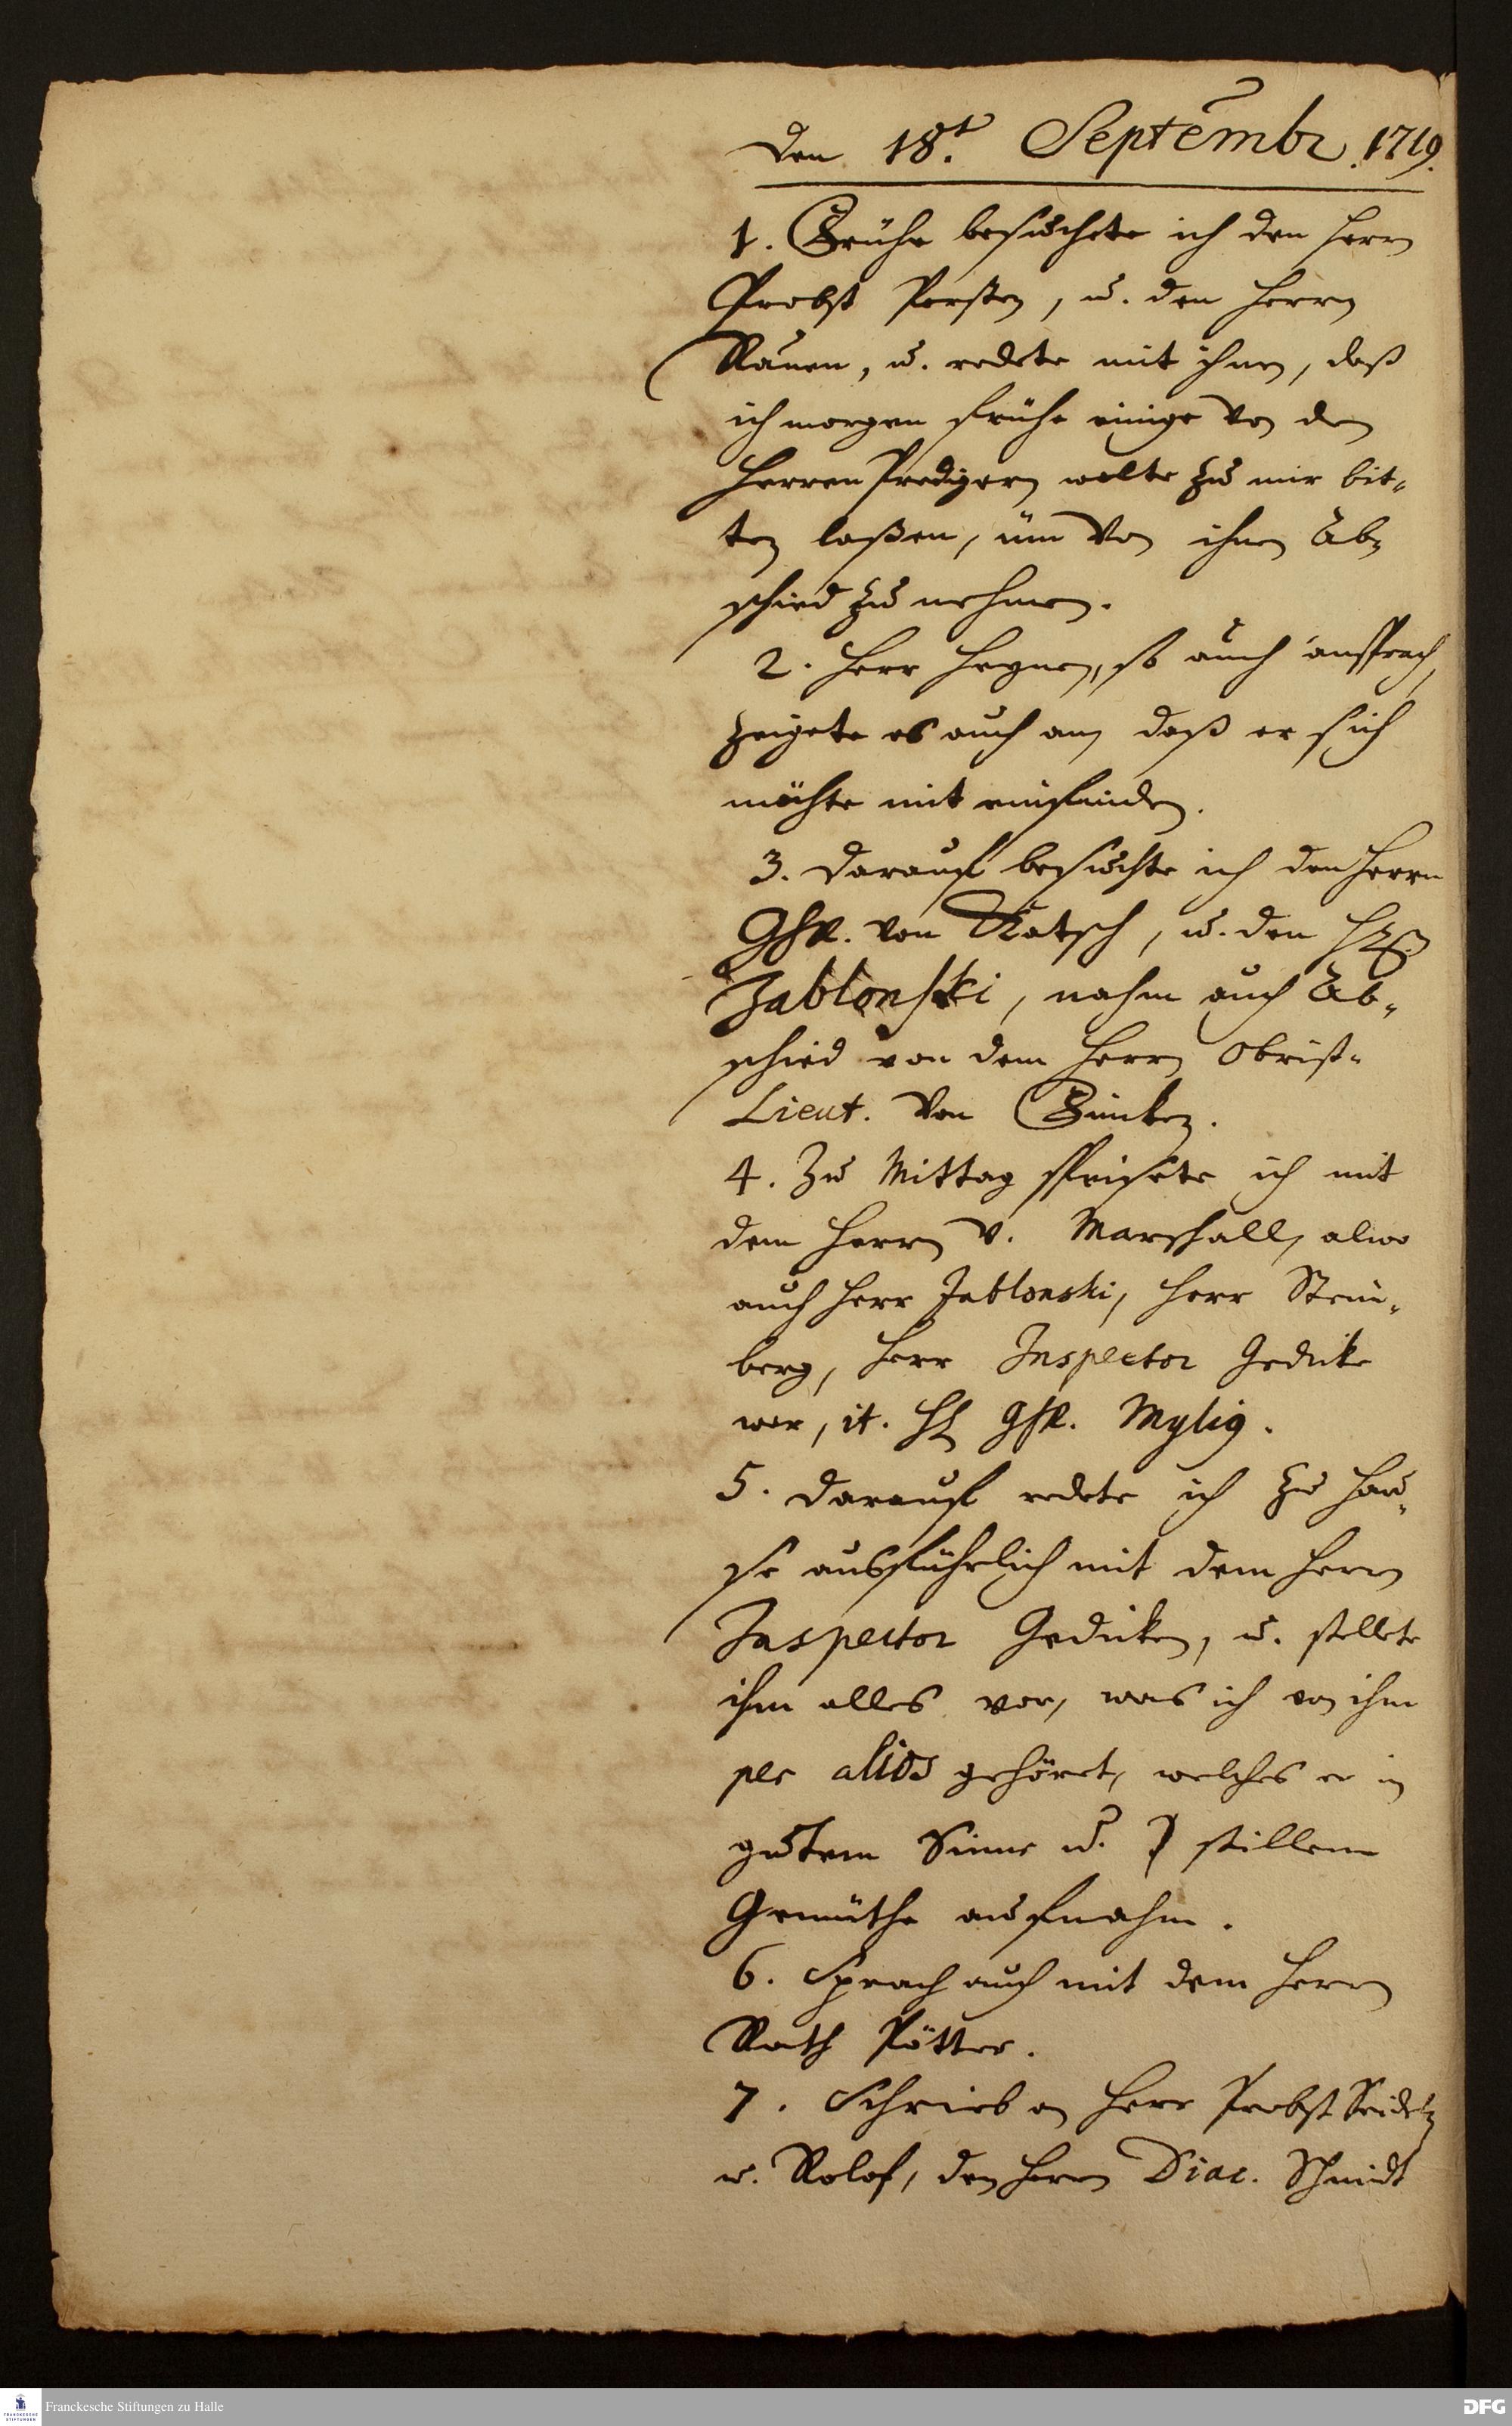 den 18.t Septembr. 1719.
1. Frühe besuchete ich den Herrn
Probst Porsten, u. den Herrn
Rauen, u. redete mit ihnen, daß
ich morgen frühe einige von den
Herren Predigern wolte zu mir bit-
ten laßen, üm von ihnen Ab-
schied zu nehmen.
2. Herr Heynen, so auch ansprach,
zeigete es auch an, daß er sich
möchte mit einfinden.
3. Darauf besuchte ich den Herrn
GhR. von Katsch, u. den
Jablonski, nahm auch Ab-
schied von dem Herrn Obrist-
Lieut. von Fincken.
4. Zu Mittag speisete ich mit
dem Herrn v. Marschall, alwo
auch Herr Jablonski, Herr Stein-
berg, Herr Inspector Gedicke
war, it. H. GhR. Mylig.
5. Darauf redete ich zu Hau-
se ausführlich mit dem Herrn
Inspector Gedicken, u. stellete
ihm alles vor, was ich von ihm
per alios gehöret, welches er in
gutem Sinne u. stillem
Gemüthe aufnahm.
6. Sprach auch mit dem Herrn
Rath Pötter.
7. Schrieb an Herr Probst Seideln
u. Rolof, den Herrn Diac. Schmidt
Franckesche Stiftungen zu Halle
DFG